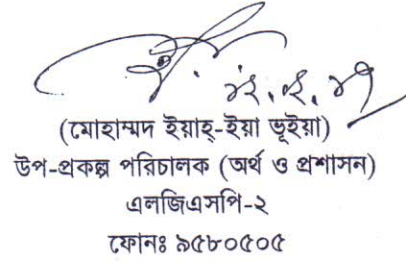 (মোহাম্মদ ইয়াহ্-ইয়া ভূইয়া)
উপ-প্রকল্প পরিচালক (অর্থ ও প্রশাসন)
এলজিএসপি-২
ফোনঃ ৯৫৮০৫০৫